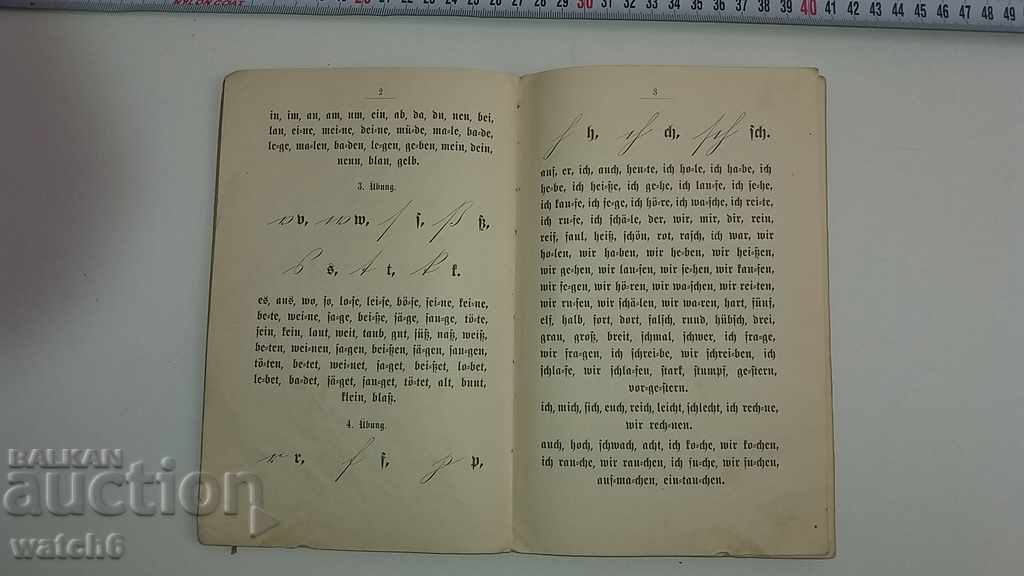 NYLON COAT 29 30 31 32 33 34 35 36 37 38 39 40 41 42 43 44 45 46 47 48 49
2
in, im, an, am, um, ein, ab, da, du, nen, bei,
lau, ei⸗ne, mei⸗ne, dei⸗ne, mü⸗de, ma⸗le, ba⸗de,
le⸗ge, ma⸗len, ba⸗den, le⸗gen, ge⸗ben, mein, dein,
neun, blau, gelb.
3. Übung.
v v, w w, ſ ſ, ß ß,
s s, t t, k k.
es, aus, wo, ſo, lo⸗ſe, lei⸗ſe, bö⸗ſe, ſei⸗ne, kei⸗ne,
be⸗te, wei⸗ne, ſa⸗ge, bei⸗ße, ſä⸗ge, ſau⸗ge, tö⸗te,
ſein, kein, laut, weit, taub, gut, ſüß, naß, weiß,
be⸗ten, wei⸗nen, ſa⸗gen, bei⸗ßen, ſä⸗gen, ſau⸗gen,
tö⸗ten, be⸗tet, wei⸗net, ſa⸗get, bei⸗ßet, lo⸗bet,
le⸗bet, ba⸗det, ſä⸗get, ſau⸗get, tö⸗tet, alt, bunt,
klein, blaß.
4. Übung.
r r, f f, p p,
3
h h, ch ch, ſch ſch.
auf, er, ich, auch, heu⸗te, ich ho⸗le, ich ha⸗be, ich
he⸗be, ich hei⸗ße, ich ge⸗he, ich lau⸗fe, ich ſe⸗he,
ich kau⸗fe, ich fe⸗ge, ich hö⸗re, ich wa⸗ſche, ich rei⸗te,
ich ru⸗fe, ich ſchä⸗le, der, wir, mir, dir, rein,
reif, faul, heiß, ſchön, rot, raſch, ich war, wir
ho⸗len, wir ha⸗ben, wir he⸗ben, wir hei⸗ßen,
wir ge⸗hen, wir lau⸗fen, wir ſe⸗hen, wir kau⸗fen,
wir fe⸗gen, wir hö⸗ren, wir wa⸗ſchen, wir rei⸗ten,
wir ru⸗fen, wir ſchä⸗len, wir wa⸗ren, hart, fünf,
elf, halb, fort, dort, falſch, rund, hübſch, drei,
grau, groß, breit, ſchmal, ſchwer, ich fra⸗ge,
wir fra⸗gen, ich ſchrei⸗be, wir ſchrei⸗ben, ich
ſchla⸗fe, wir ſchla⸗fen, ſtark, ſtumpf, ge⸗ſtern,
vor⸗ge⸗ſtern.
ich, mich, ſich, euch, reich, leicht, ſchlecht, ich rech⸗ne,
wir rech⸗nen.
auch, hoch, ſchwach, acht, ich ko⸗che, wir ko⸗chen,
ich rau⸗che, wir rau⸗chen, ich ſu⸗che, wir ſu⸗chen,
auf⸗ma⸗chen, ein⸗tau⸗chen.
BALKAN
auction
watch6